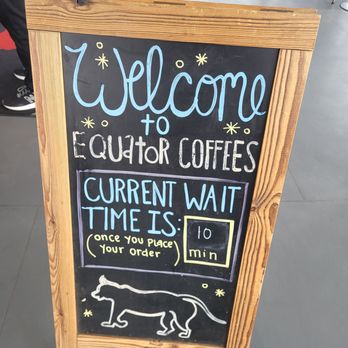 Welcome
to
EQUatOR COFFEES
CURRENT WAIT
TIME IS: 10
(once you place
your order) min